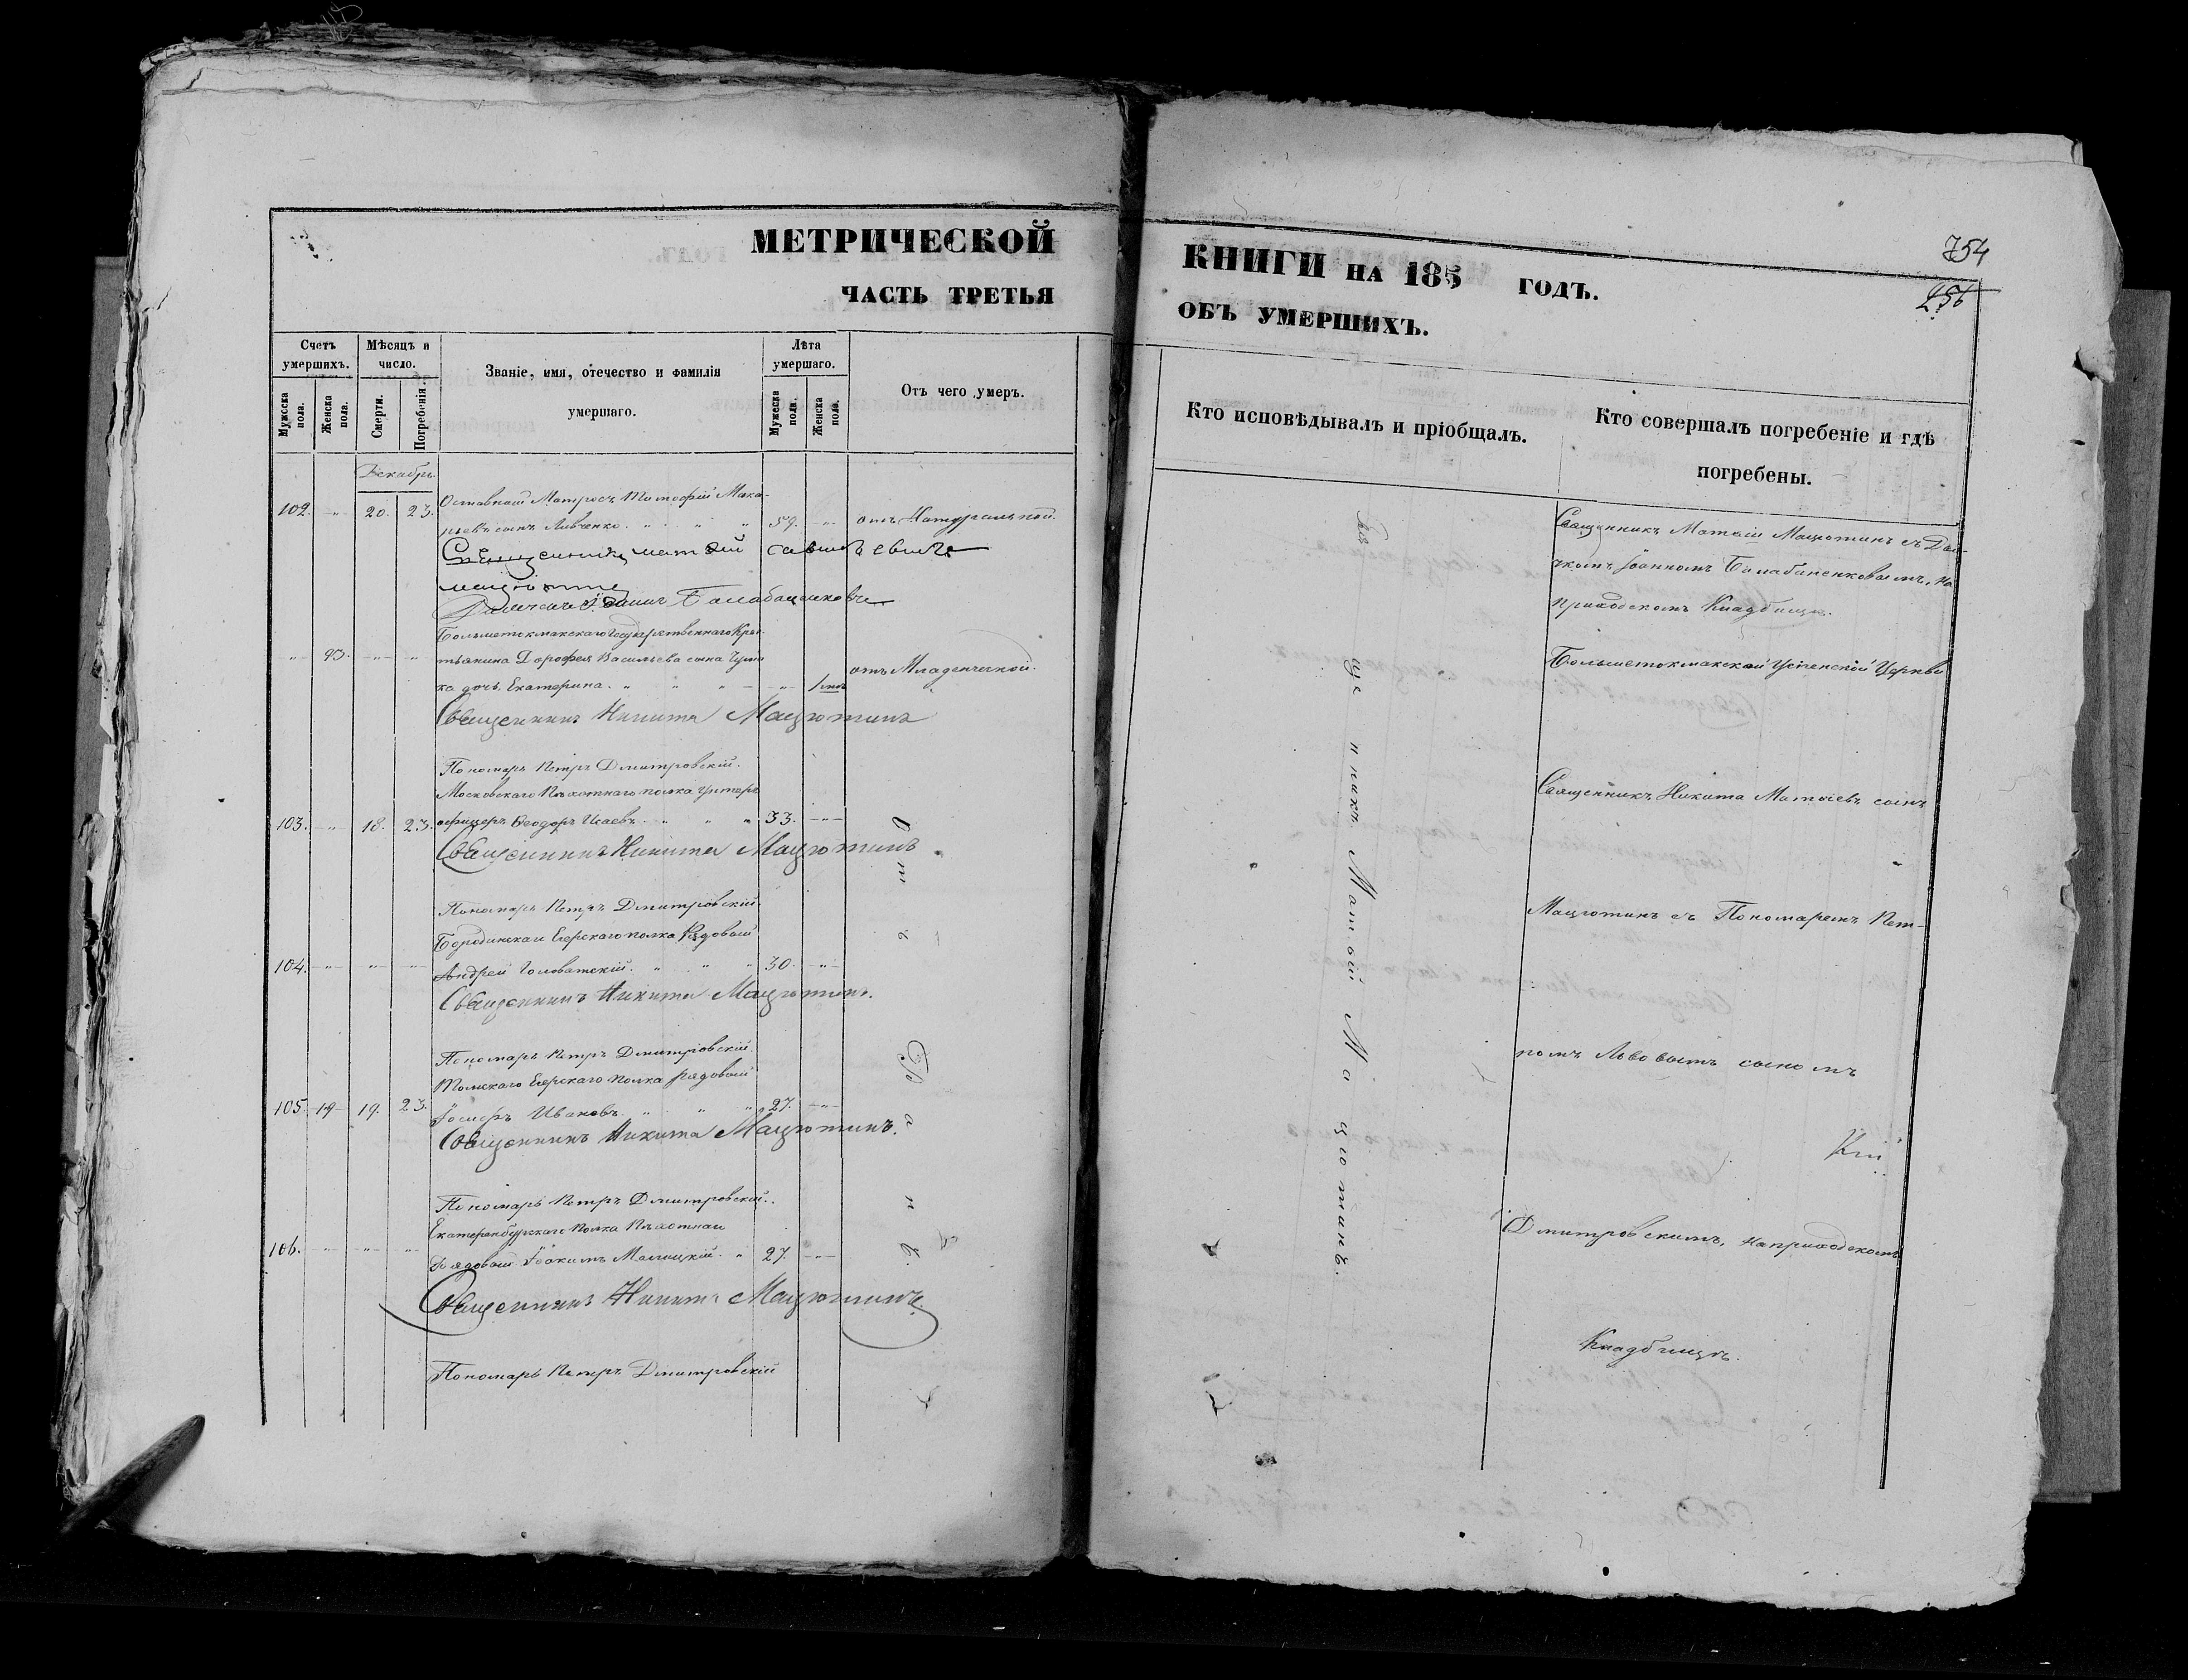 МЕТРИЧЕСКОЙ
ЧАСТЬ ТРЕТЬЯ
Счетъ умершихъ.
Мужеска пола.
Женска пола.
Мѣсяцъ и число.
Смерти.
Погребенія.
Званіе, имя, отечество и фамилія
умершаго.
Лѣта умершаго.
Мужеска пола.
Женска пола.
Отъ чего умеръ.
Декабрь
Отставной Матросъ Тимофій Мака-
102. " 20. 23. рьевъ сынъ Ливченко. " " " 59. " отъ Натуральной.
Священникъ
Большетокмакскаго Государственнаго Крес-
" 23. " " тьянина Дорофея Васильева сына
ка дочь Екатерина. " " " " 1 отъ Младенческой.
Священникъ Никита Мацютинъ
Пономарь Петръ Дмитровскій.
Московскаго Пѣхотнаго полка Унтеръ
103. " 18. 23. офицеръ Ѳеодоръ Исаевъ. " " " 33. "
Священникъ Никита Мацютинъ
Пономарь Петръ Дмитровскій.
Бородинскаго Егерскаго полка Рядовый
104. " " " Андрей Головатскій. " " " 30. "
Священникъ Никита Мацютинъ.
Пономарь Петръ Дмитровскій.
Томскаго Егерскаго полка рядовый
105. 19. 23. Іосифъ Ивановъ. " " " 27. "
Священникъ Никита Мацютинъ.
Пономарь Петръ Дмитровскій.
Екатеринбургскаго Полка Пѣхотнаго
106. " " " Рядовый Іоакимъ Малицкій. " 27. "
Священникъ Никита Мацютинъ.
Пономарь Петръ Дмитровскій
Отъ Ранъ.
754
256
КНИГИ НА 185 ГОДЪ.
ОБЪ УМЕРШИХЪ.
Кто исповѣдывалъ и пріобщалъ.
Кто совершалъ погребеніе и гдѣ
погребены.
Священникъ Матѳій Мацютинъ.
Священникъ Матѳій Мацютинъ съ Дья-
чкомъ Іоанномъ Балабаненковымъ, на
приходскомъ Кладбищѣ.
Большетокмакской Успенской Церкви
Священникъ Никита Матѳіевъ сынъ
Мацютинъ съ Пономаремъ Пет-
ромъ Львовымъ сыномъ
Дмитровскимъ, на приходскомъ
Кладбищѣ.